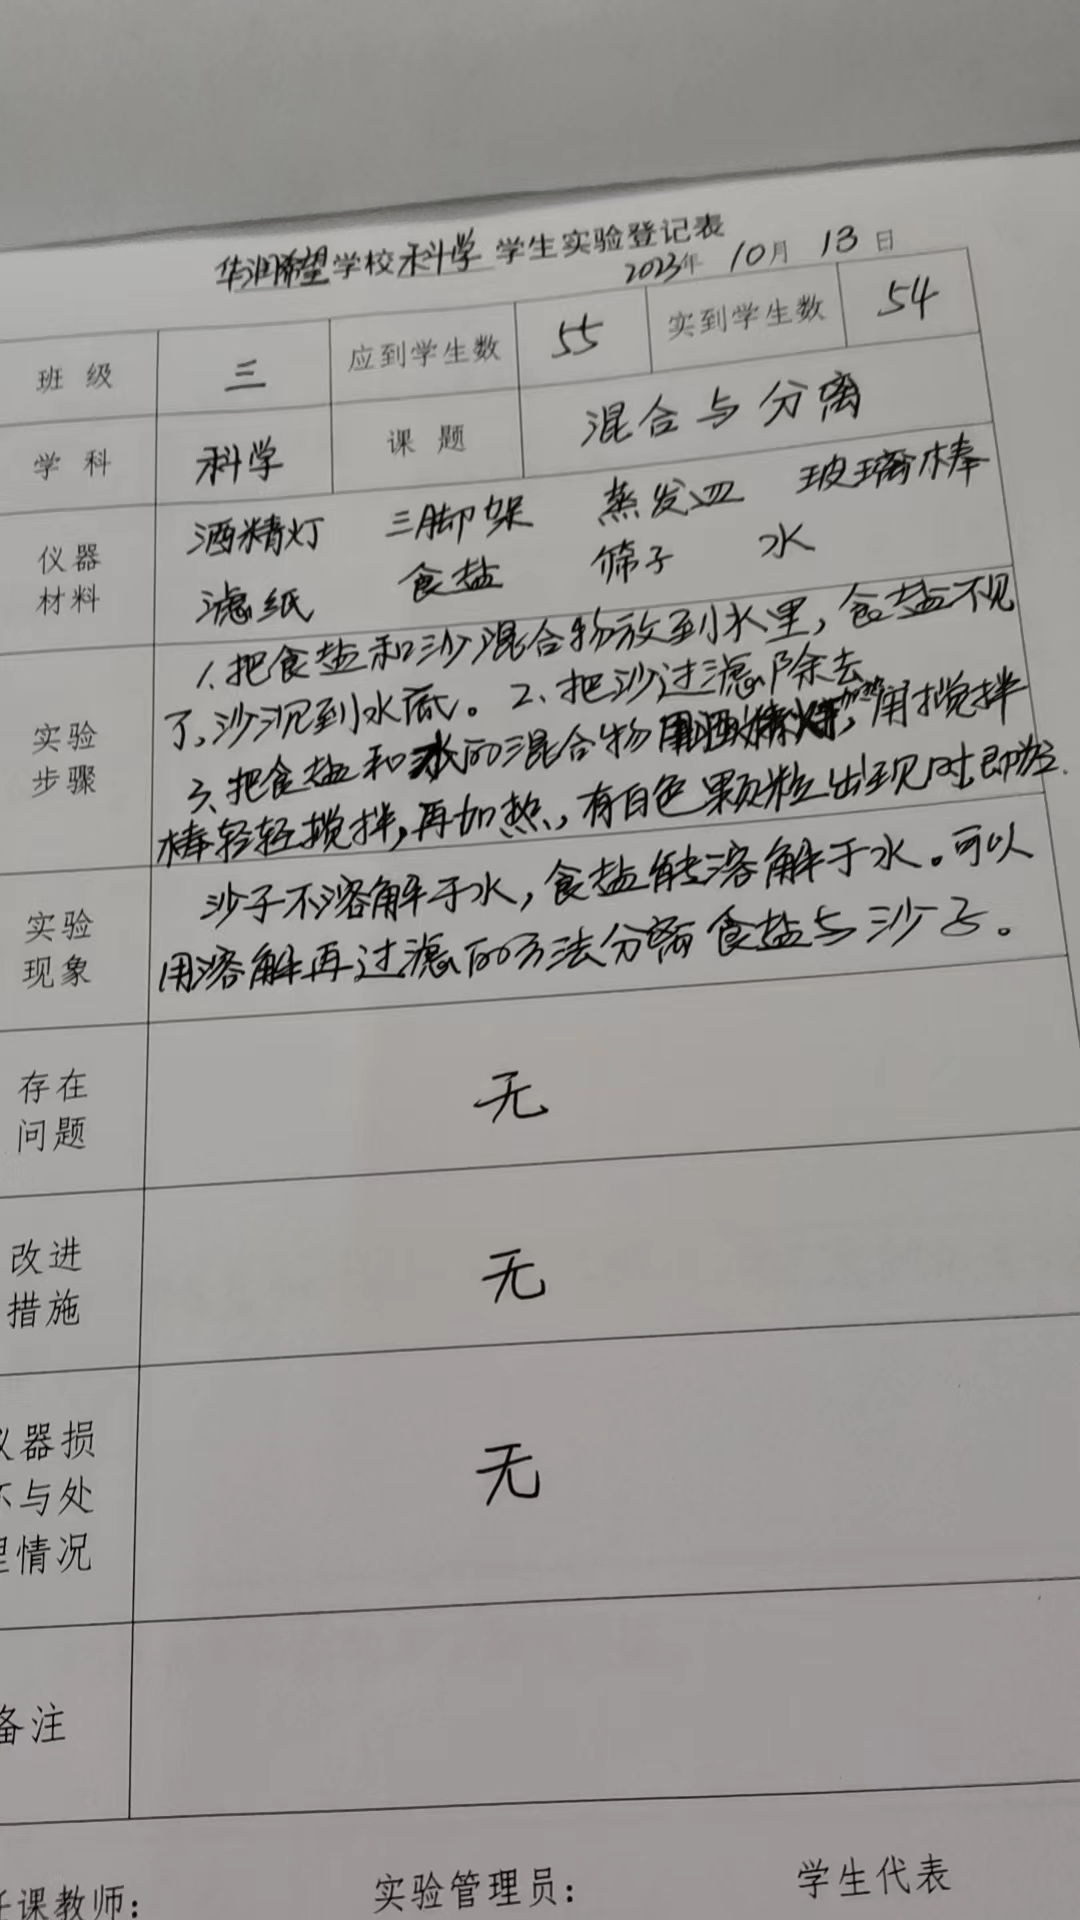 华润希望学校科学 学生实验登记表
2023年 10月 13日
班 级 三 应到学生数 55 实到学生数 54
学 科 科学 课 题 混合与分离
仪器材料 酒精灯 三脚架 蒸发皿 玻璃棒
滤纸 食盐 筛子 水
实验步骤 1、把食盐和沙混合物放到水里，食盐不见
了，沙沉到水底。2、把沙过滤除去
3、把食盐和水的混合物用酒精灯加热，用搅拌
棒轻轻搅拌，再加热，有白色颗粒出现时即
实验现象 沙子不溶解于水，食盐能溶解于水。可以
用溶解再过滤的方法分离食盐与沙子。
存在问题 无
改进措施 无
仪器损坏与处理情况 无
备注
任课教师： 实验管理员： 学生代表